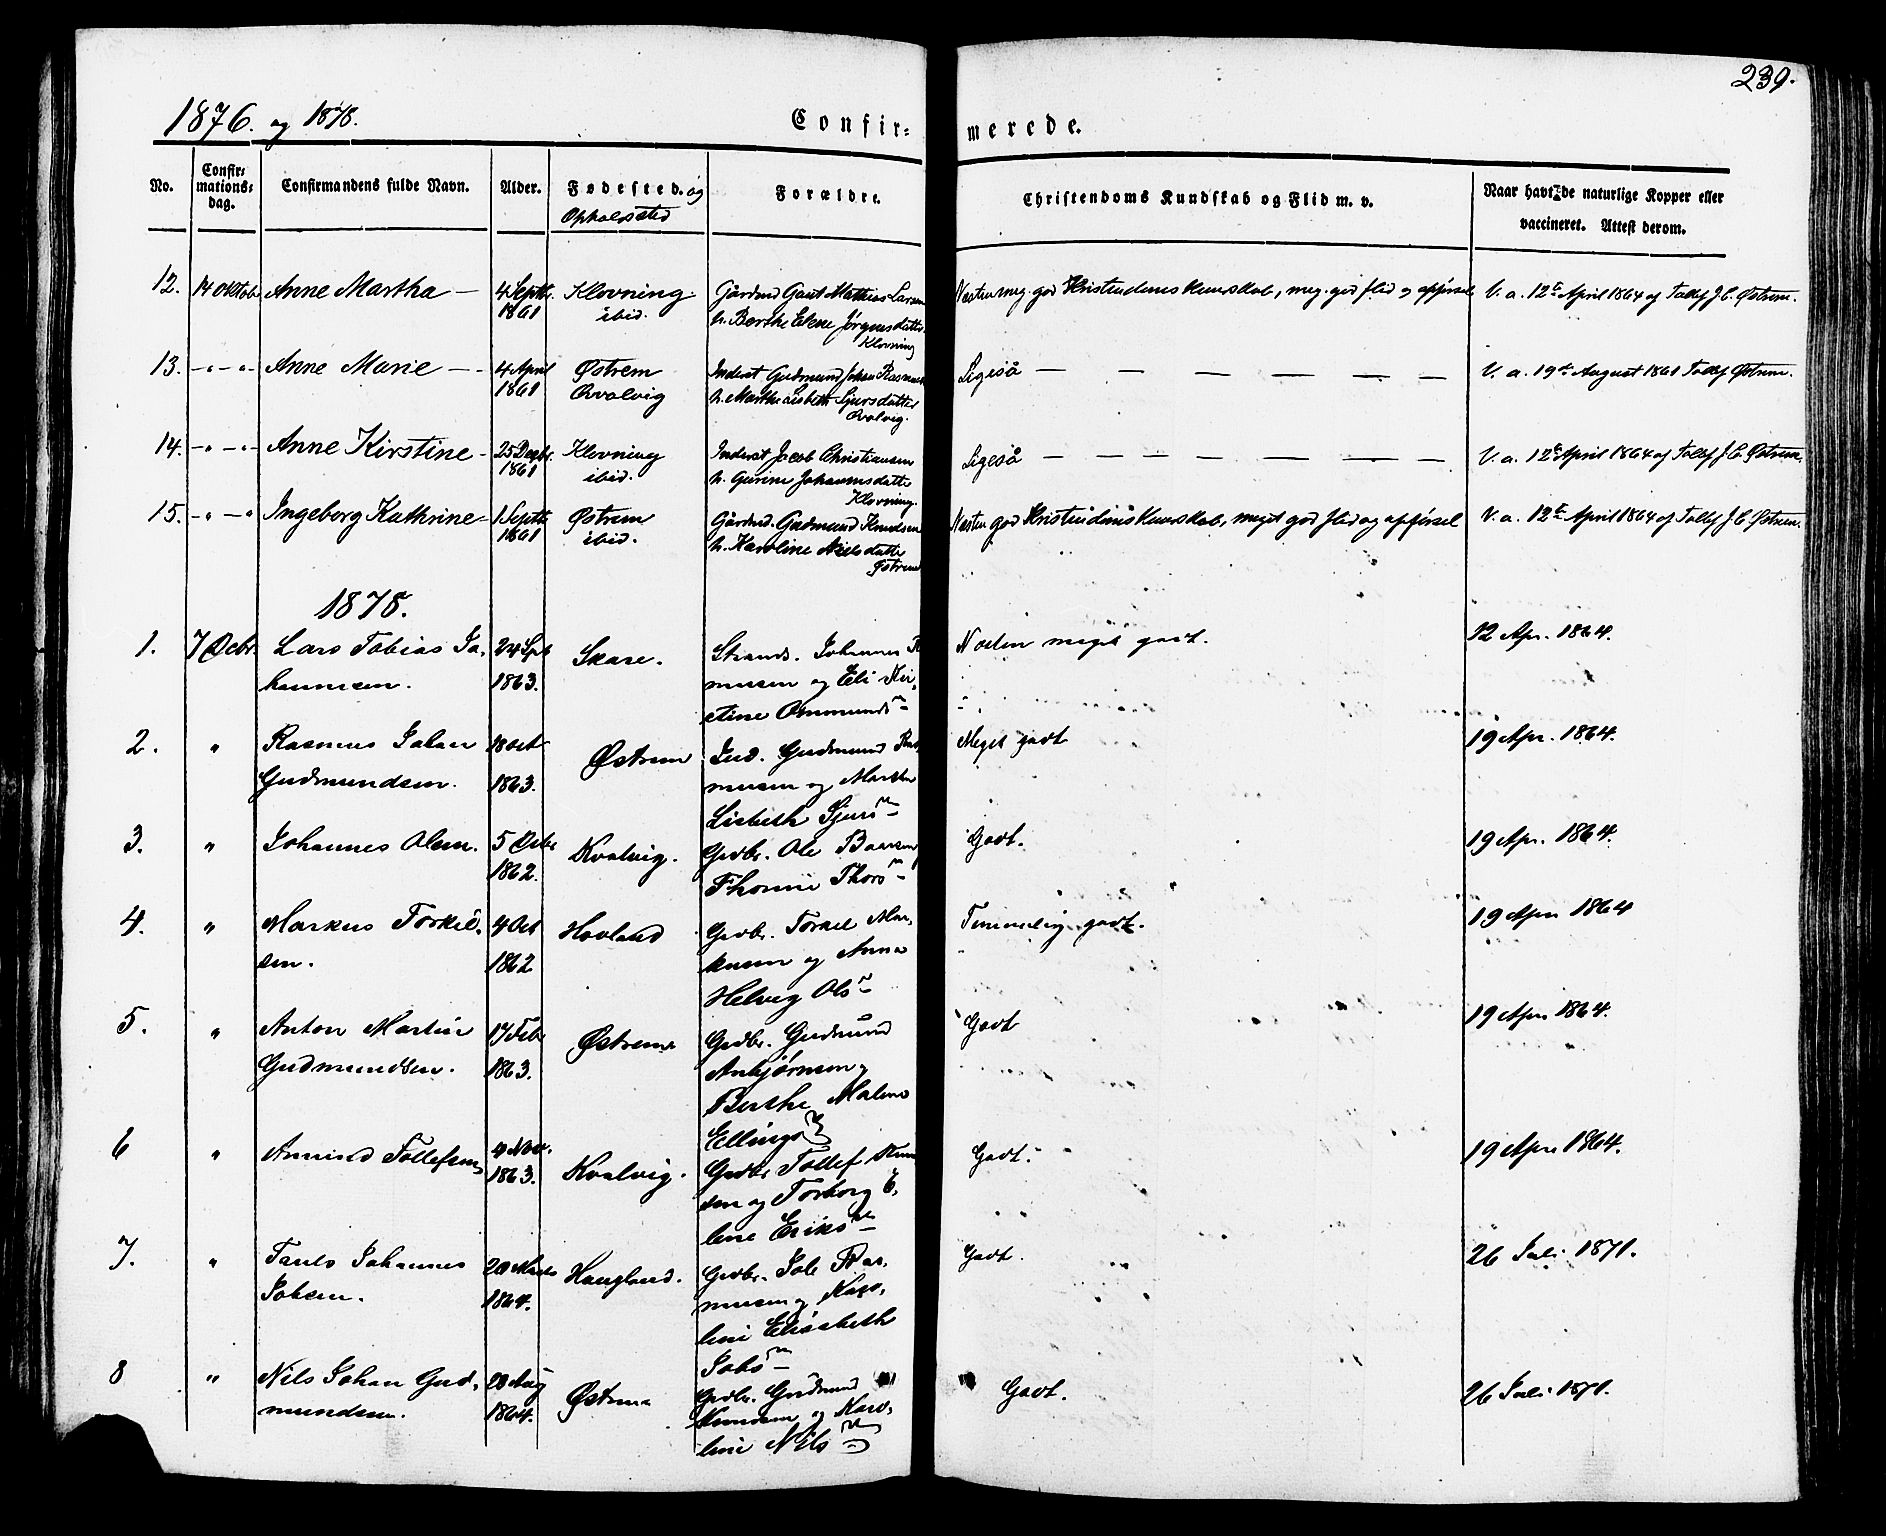 239.
1876. og 1878.
Confir-merede.
No. Confir-mations-dag. Confirmandens fulde Navn. Alder. Fødested. og Opholdssted Forældre. Christendoms Kundskab og Flid m. v. Naar havt de naturlige Kopper eller vaccineret. Attest derom.
12. 14 Oktob. Anne Martha — 4 Septbr. 1861 Klovning ibid. Gårdmd Gaut Mathias Larsen
h. Berthe Elene Jørgensdatter Klovning
Næsten meg. god Kristendoms kunskab, meg. god flid og opførsel V. a. 12te April 1864 af Tollef J. C. Østrem.
13. -"-"- Anne Marie — 4 April 1861 Østrem Qvalvig Inderst Gudmund Johan Rasmus
h. Marthe Lisbeth Sjursdatter Qvalvig.
Ligeså — — — — — — V. a. 19de August 1861 Tollef Østrem.
14. -"-"- Anne Kirstine - 25 Decbr. 1861 Klovning ibid. Inderst Jacob Christiansen
h. Gurine Johannesdatter Klovning.
Ligeså — — — — — — V. a. 12te April 1864 af Tollef J. C. Østrem.
15. -"-"- Ingeborg Kathrine - 1 Septbr. 1861 Østrem ibid. Gårdmd. Gudmund Knudsen
h. Karoline Nielsdatter Østrem
Næsten god Kristendoms kunskab, meget god flid og opførsel V. a. 12te April 1864 af Tollef J. C. Østrem.
1878.
1. 7 Octbr. Lars Tobias Jo-
hannesen. 24 Spt 1863. Skare. Strands. Johannes R
musen og Eli Kir-
stine Ommundsn
Næsten meget godt. 12 Apr. 1864.
2. " Rasmus Johan
Gudmundsen. 18 Oct 1863. Østrem Ind. Gudmund Ras
musen og Martha
Lisbeth Sjursn
Meget godt 19 Apr. 1864.
3. " Johannes Olsen. 5 Octbr 1862. Kvalvig. Grdbr. Ole
Thorsn
Godt. 19 Apr. 1864.
4. " Markus Torkil-
sen. 4 Oct 1862 Hovland Grdbr. Torkel Mar-
kusen og Anna
Helvig Olsn
Temmelig godt. 19 Apr 1864
5. " Anton Martin
Gudmundsen. 17 Febr 1863. Østrem Grdbr. Gudmund
Asbjørnsen og
Berthe Malene
Ellingsn
Godt 19 Apr 1864.
6 " Amund Tollefsen 4 Nov. 1863. Kvalvig. Grdbr Tollef
sen og Torborg E-
line Eriksn
Godt. 19 Apr 1864.
7. " Johannes
Jobsen. 20 1864. Haugland. Grdbr. Job Ras-
musen og Karo-
line Elisabeth
Jobsn
Godt. 26 Juli 1871.
8 " Nils Johan Gud-
mundsen. 20 Aug 1864. Østrem Grdbr. Gudmund
Knudsen og Karo-
line Nilsn
Godt. 26 Juli 1871.